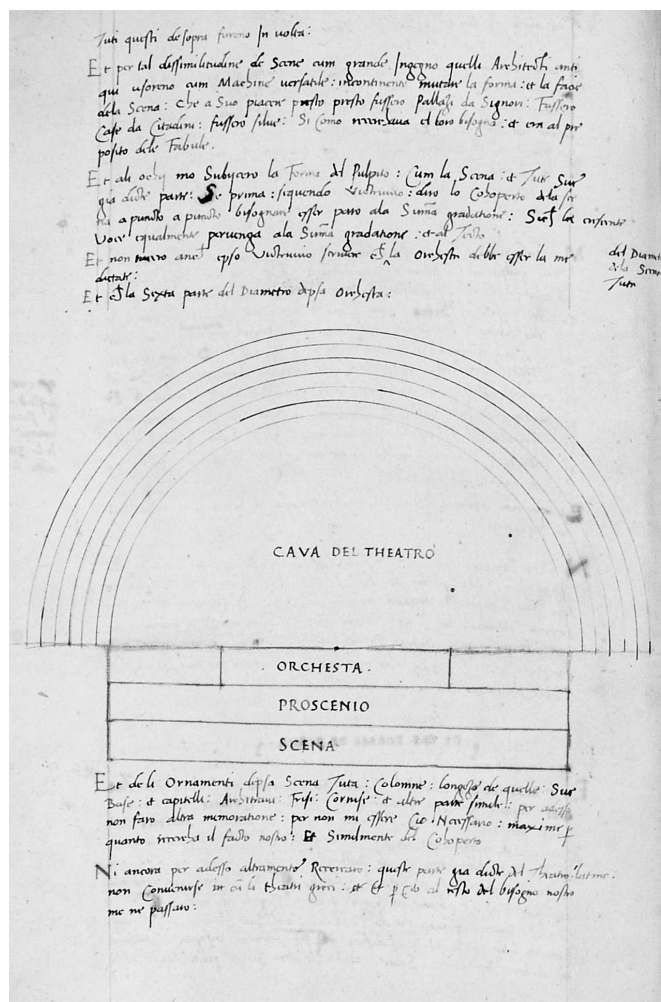 Tuti questi desopra fureno In volta:
Et per tal dissimilitudine de Scene cum grande Ingegno quelli Architecti anti
qui usoreno cum Machine versatile: incontinente mutare la forma: et la facie
dela Scena: Che a Suo piacere presto presto fussero Pallazi da Signori: Fussero
Case da Citadini: fussero silve: Si Como recercava el loro bisogno: et era al pro
posito dele Fabule.
Et ali ochij mo Subycero la Forma del Pulpito: Cum la Scena: et Tute Sue
gia dicte parte: Se prima: sequendo Victruvio: diro lo Cohoperto dela sce
na a puncto a puncto bisognare esser paro ala Suma gradatione: la crescente
Voce equalmente pervenga ala Suma gradatione: et al Tecto
Et non epso Victruvio scrivere la Orchestra debbe esser la me
del Diamet
dela Scena
Tuta
dictate:
Et la Sexta parte del Diametro depsa Orchestra:
CAVA DEL THEATRO
ORCHESTA.
PROSCENIO
SCENA
Et deli Ornamenti depsa Scena Tuta: Colomne: longeze de quelle: Sue
Base: et capitelli: Architravi: Frisi: Cornise: et altre parte simile: per
non faro altra memoratione: per non mi essere Cio Necessario: maxime
quanto recercha il facto nostro: Et Simulmente del Cohoperto
Ni ancora per adesso altramente Recercaro: queste parte gia dicte del Theatro latino.
non Convenirse in li theatri greci: et al resto del bisogno nostro
me ne passaro: